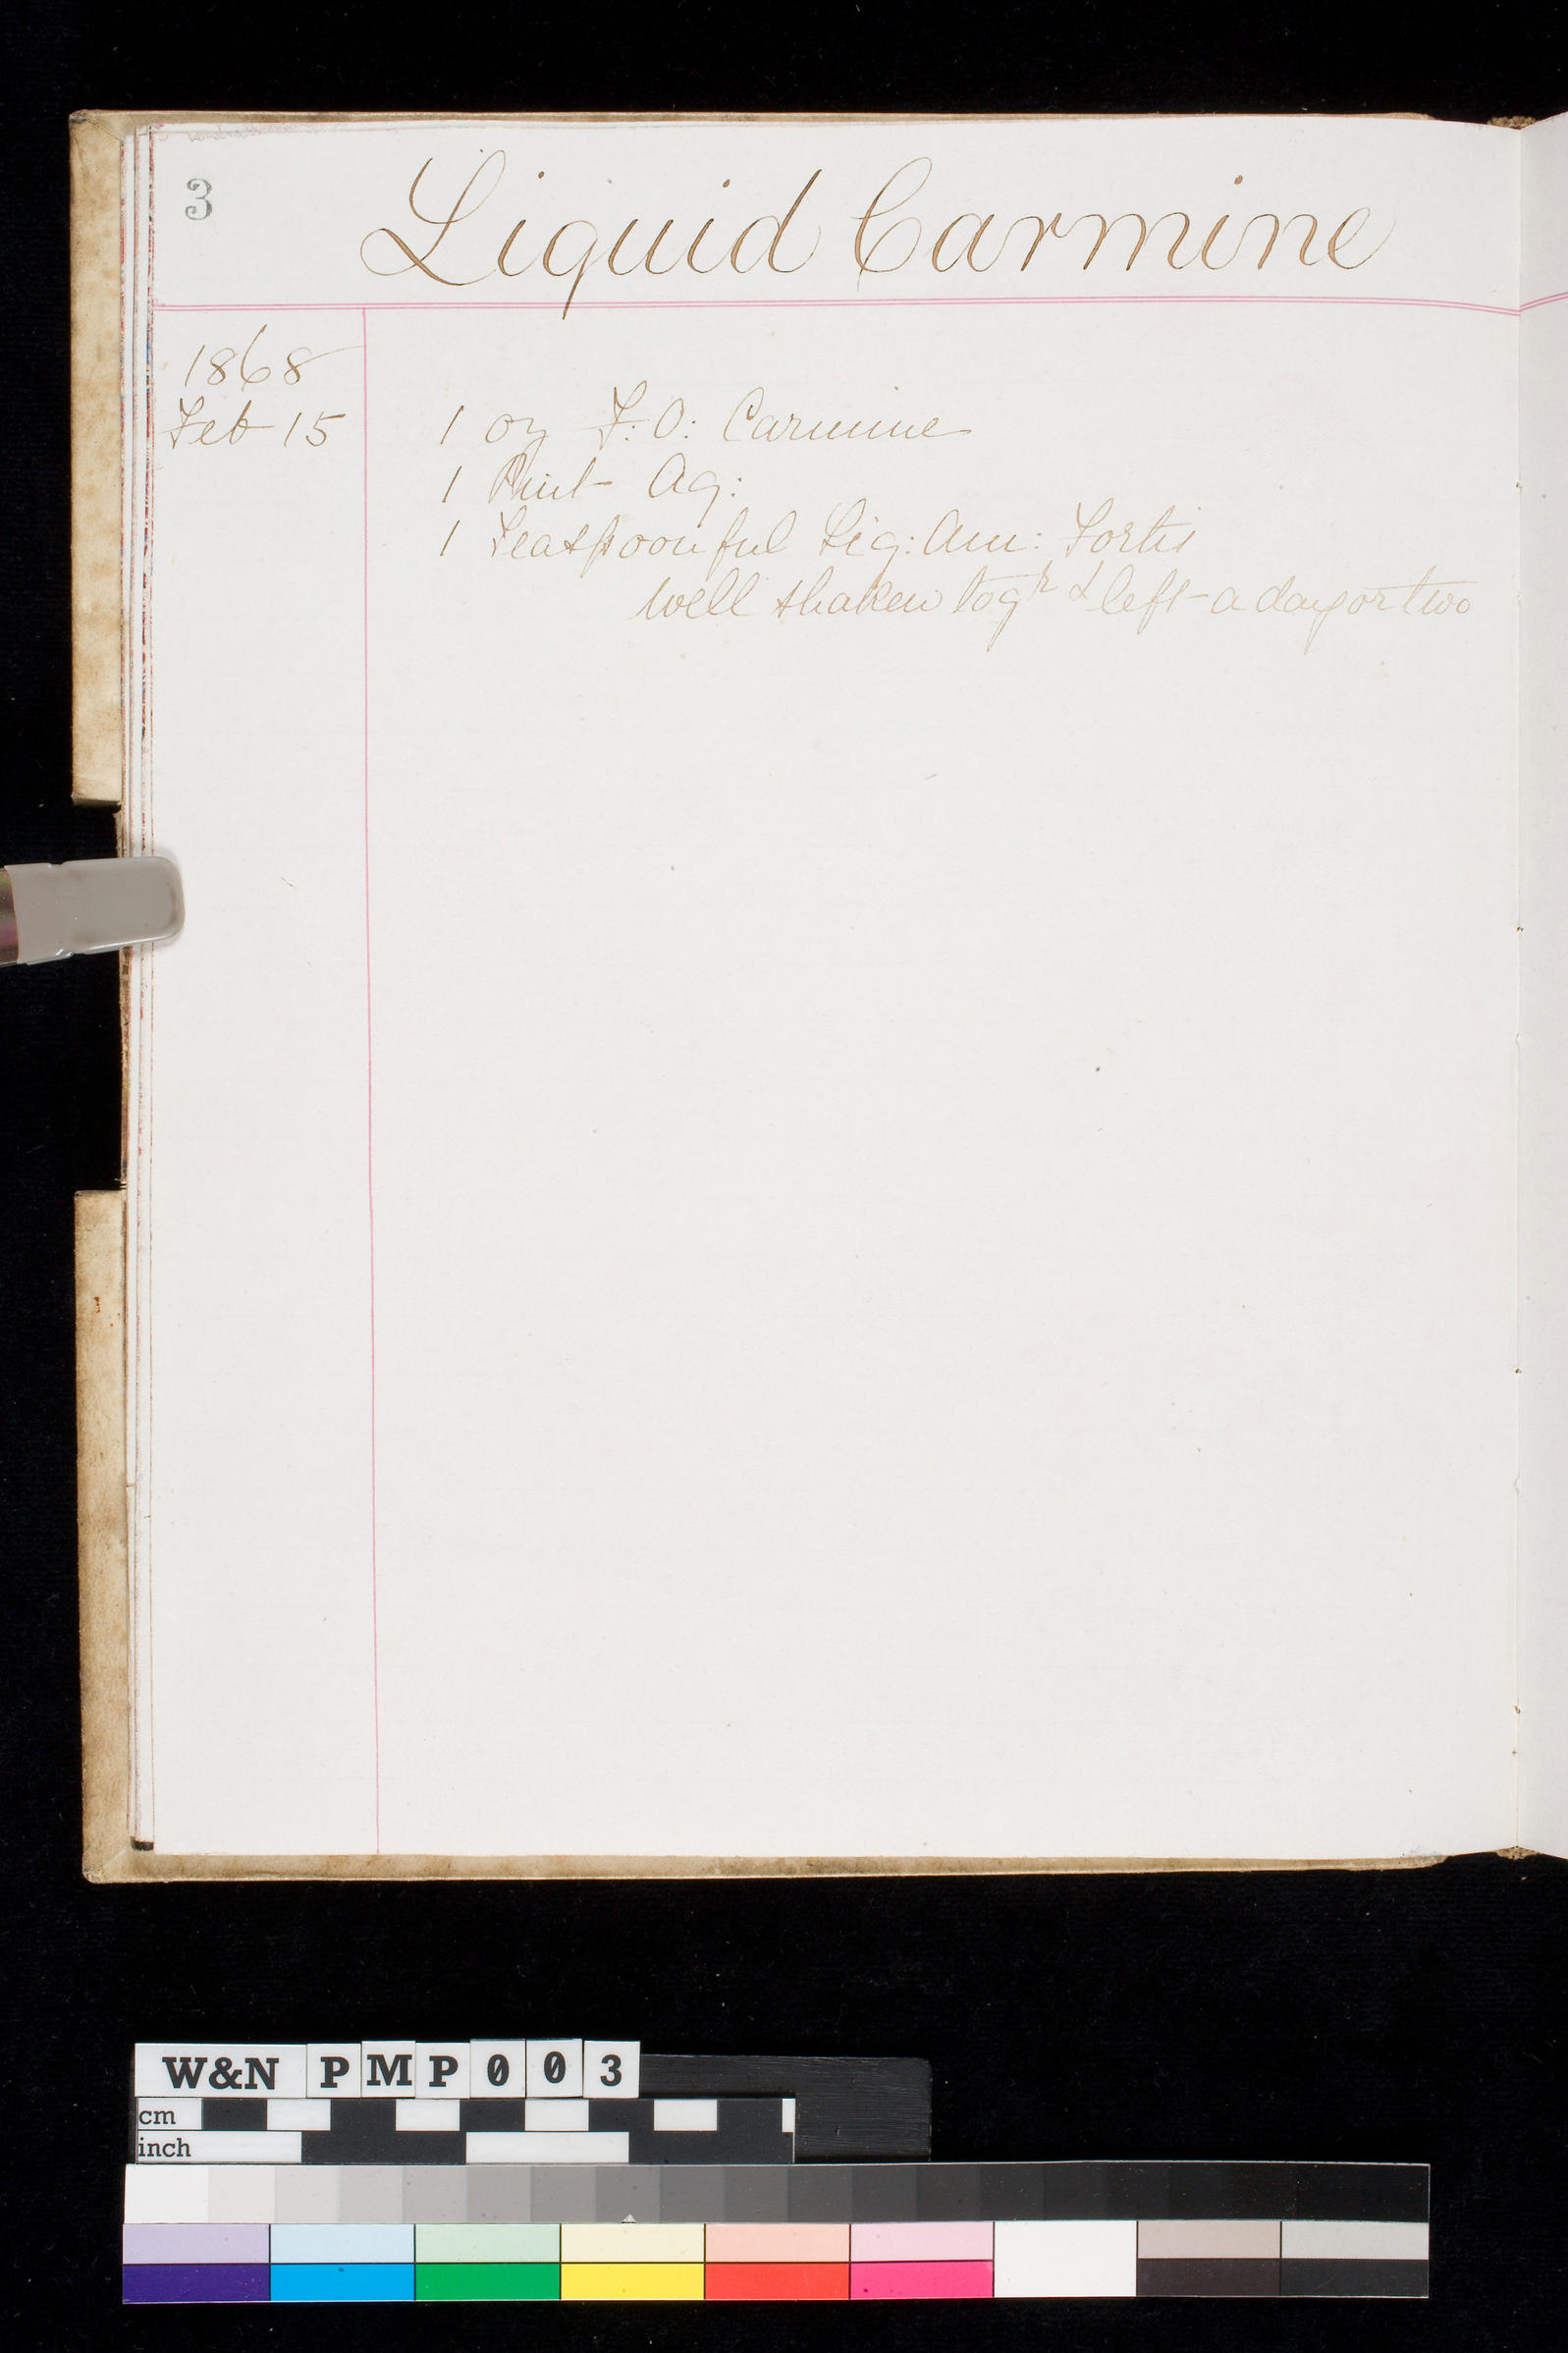 3
Liquid Carmine
1868
Feb 15
1 oz F: O: Carmine
1 Pint Aq:
1 Teaspoonful Liq: Am: Fortis
well shaken togr & left a day or two
W&N PMP003
cm
inch